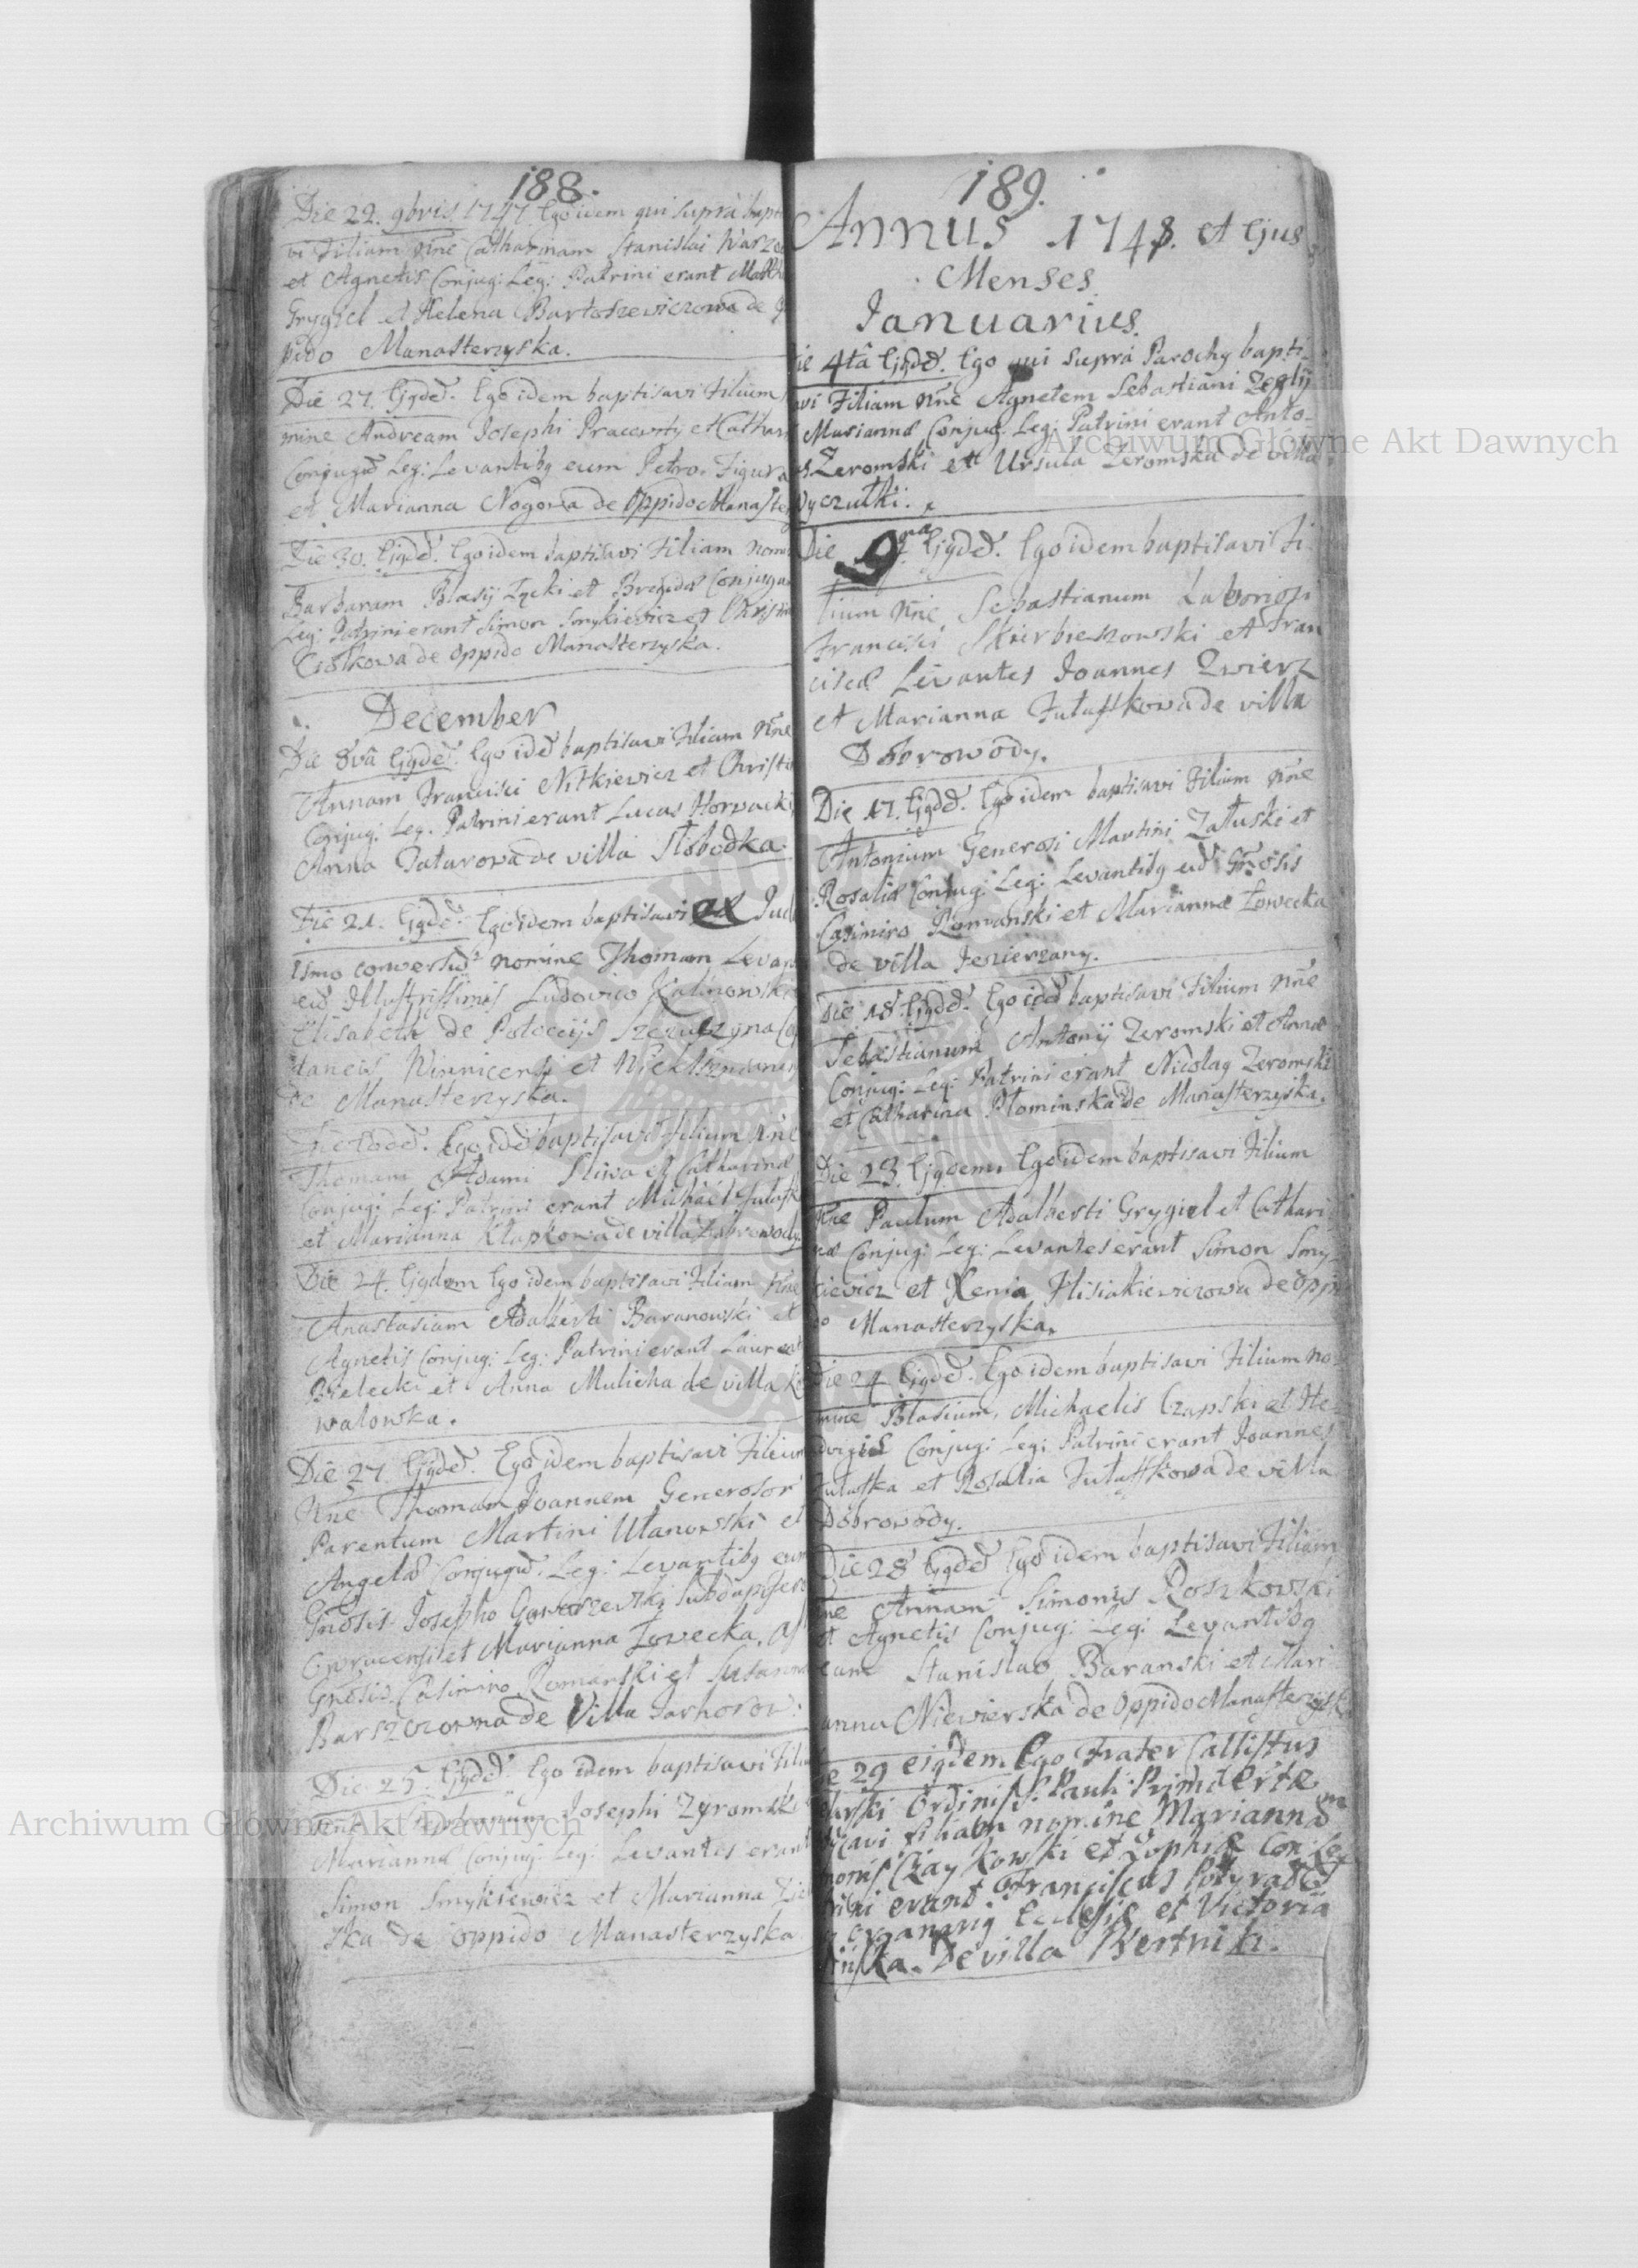 188.
Die 22. 9bris 1747. Ego idem qui supra bapti
vi Filiam nne Catharinam Stanislai Warz
et Agnetis Conjug: Leg: Patrini erant Matth
Grygiel et Helena Bartoszewiczowa de
pido Manasterzyska.
Die 27. Ejqded. Ego idem baptisavi Filium
mine Andream Josephi Pracewity et Cathar
Conjugu Leg: Levantibq eum Petro Figura
et Marianna Nogowa de Oppido Manaste
Die 30. Ejqded. Ego idem baptisavi Filiam nomi
Barbaram Blasij Łącki et Brigidæ Conjuga
Leg: Patrini erant Simon Smykiewicz et Christi
Ciołkowa de Oppido Manasterzyska.
December
Die 8va Ejqded. Ego ided baptisavi Filiam nne
Annam Francisci Nitkiewicz et Christi
Conjug: Leg. Patrini erant Lucas Horwacki
Anna Tatarowa de villa Słobodka.
Die 21. Ejqded. Ego idem baptisavi ex Jud
ismo conversu nomine Thomam Levan
eu Illustrissimis Ludovico Kalinowski
Elisabeth de Potocijs
Winnicensi et
de Manasterzyska.
Die eoded. Ego ided baptisavi Filium nne
Thomam Adami Sliwa et Catharinæ
Conjug: Leg: Patrini erant Michael Futaşk
et Marianna Kłapkowa de villa Dobrowody.
Die 24. Ejqdem Ego idem baptisavi Filiam nne
Anastasiam Adalberti Baranowski et
Agnetis Conjug: Leg: Patrini erant Laurent
Bielecki et Anna Mulicha de villa Ko
walowka.
Die 27. Ejqded. Ego idem baptisavi Filium
nne Thomam Joannem Generosor
Parentum Martini Ułanowski et
Angelæ Conjugu. Leg: Levantibq eum
Gnosis Josepho Gaworzewski Subdapifero
Owrucensi et Marianna Łowecka. Ass
Gnosis Casimiro Romanski et Susanna
Barszczowna de Villa Jarhorow.
Die 25. Ejqded. Ego idem baptisavi Filiu
Josephi Zyromski
Mariannæ Conjug: Leg: Levantes erant
Simon Smykiewicz et Marianna
ska de oppido Manasterzyska
189.
Annus 1748. et Ejus
Menses
Januarius.
ie 4tâ Ejqded. Ego qui supra Parochq bapti-
avi Filiam nne Agnetem Sebastiani Zeglij
Mariannæ Conjug. Leg: Patrini erant Anto-
Zeromski et Ursula Zeromska de villa
yczułki.
Die 9na Ejqded. Ego idem baptisavi Fi-
lium nne Sebastianum Laboriosi
Francisci Skierbieszowski et Fran
ciscæ Levantes Joannes Zwierz
et Marianna Futaşkowa de villa
Dobrowody.
Die 17. Ejqded. Ego idem baptisavi Filium nne
Antonium Generosi Martini Załuski et
Rosaliæ Conjug: Leg: Levantibq eu Gnosis
Casimiro Romanski et Marianna Łowecka
de villa Jezierzany.
Die 18. Ejqded. Ego ided baptisavi Filium nne
Sebastianum Antonij Zeromski et Annæ
Conjug: Leg: Patrini erant Nicolaq Zeromski
et Catharina Płominska de Manasterzyska.
Die 23. Ejqdem. Ego idem baptisavi Filium
nne Paulum Adalberti Grygiel et Cathari-
næ Conjug: Leg: Levantes erant Simon Smy-
kiewicz et Xenia Hlisiakiewiczowa de oppi
do Manasterzyska.
Die 24 Ejqded. Ego idem baptisavi Filium no-
mine Blasium, Michaelis Czapski et He-
dvigis Conjug: Leg: Patrini erant Joannes
Futaska et Rosalia Futaskowa de villa
Dobrowody.
Die 28 Ejqded Ego idem baptisavi Filiam
nne Annam Simonis Roszkowski
et Agnetis Conjug: Leg: Levantibq
eam Stanislao Baranski et Mari-
anna Niewierska de Oppido Manasterzysk
ie 29 eiqdem Ego Frater Callistus
Ordinis S. Pauli Primi Ertæ
savi filiam nomine Marianna
monis Czaykowski et Zophiæ Con: Le
trini erant Franciscus
organariq Ecclesiæ et Victoria
ńska. De villa Wertnik.
Archiwum Główne Akt Dawnych
Archiwum Główne Akt Dawnych